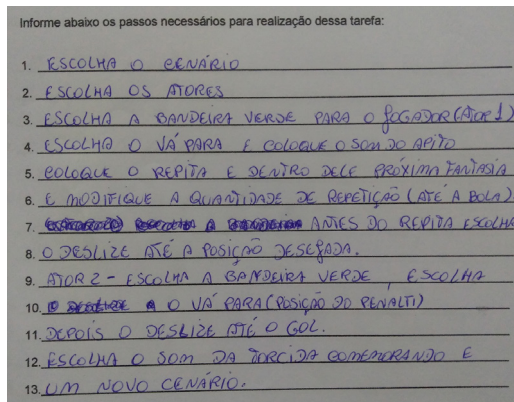 Informe abaixo os passos necessários para realização dessa tarefa:
1. ESCOLHA O CENÁRIO
2. ESCOLHA OS ATORES
3. ESCOLHA A BANDEIRA VERDE PARA O JOGADOR (ATOR 1)
4. ESCOLHA O VÁ PARA E COLOQUE O SOM DO APITO
5. COLOQUE O REPITA E DENTRO DELE PRÓXIMA FANTASIA
6. E MODIFIQUE A QUANTIDADE DE REPETIÇÃO (ATÉ A BOLA)
7. ANTES DO REPITA ESCOLHA
8. O DESLIZE ATÉ A POSIÇÃO DESEJADA.
9. ATOR 2 - ESCOLHA A BANDEIRA VERDE, ESCOLHA
10. O VÁ PARA (POSIÇÃO DO PENALTI)
11. DEPOIS O DESLIZE ATÉ O GOL.
12. ESCOLHA O SOM DA TORCIDA COMEMORANDO E
13. UM NOVO CENÁRIO.